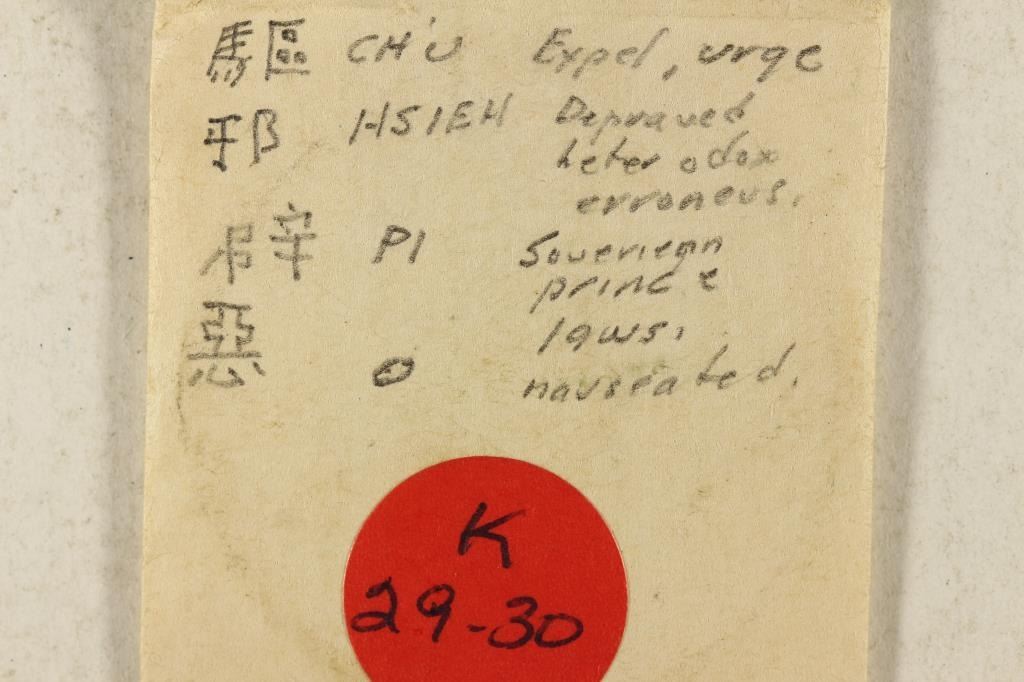 驅 CH'U Expel, urge
邪 HSIEH Depraved
heterodox
erroneus.
辟 PI Soveriegn
prince
laws.
惡 O nauseated.
K
29-30